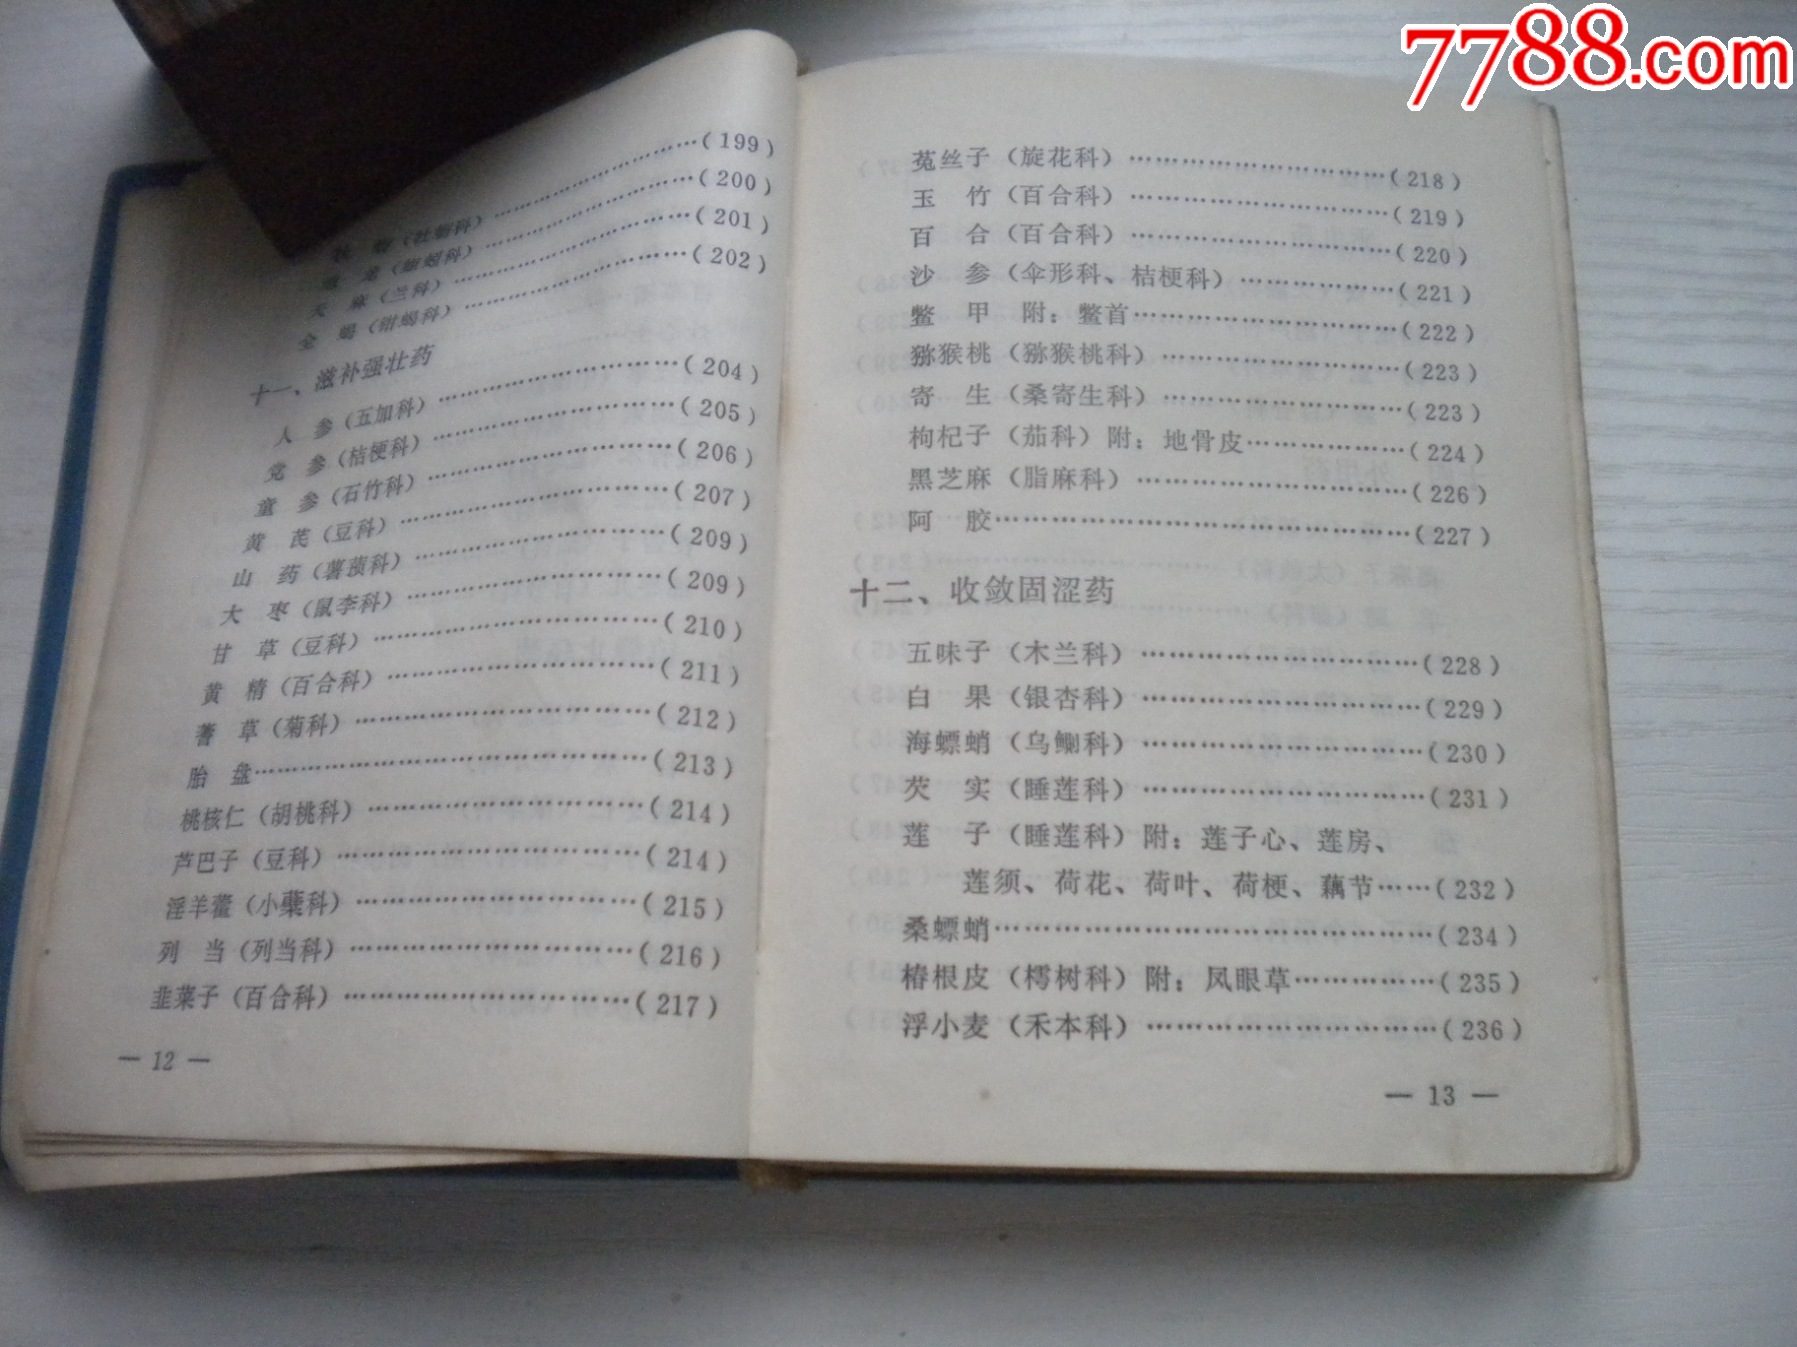 7788.com
……(199)
(牡蛎科)……(200)
……(201)
天　麻(兰科)……(202)
全　蝎(钳蝎科)
十一、滋补强壮药
人　参(五加科)……(204)
党　参(桔梗科)……(205)
童　参(石竹科)……(206)
黄　芪(豆科)……(207)
山　药(薯蓣科)……(209)
大　枣(鼠李科)……(209)
甘　草(豆科)……(210)
黄　精(百合科)……(211)
蓍　草(菊科)……(212)
胎　盘……(213)
桃核仁(胡桃科)……(214)
芦巴子(豆科)……(214)
淫羊藿(小蘗科)……(215)
列　当(列当科)……(216)
韭菜子(百合科)……(217)
— 12 —
菟丝子(旋花科)……(218)
玉　竹(百合科)……(219)
百　合(百合科)……(220)
沙　参(伞形科、桔梗科)……(221)
鳖　甲　附：鳖首……(222)
猕猴桃(猕猴桃科)……(223)
寄　生(桑寄生科)……(223)
枸杞子(茄科)附：地骨皮……(224)
黑芝麻(脂麻科)……(226)
阿　胶……(227)
十二、收敛固涩药
五味子(木兰科)……(228)
白　果(银杏科)……(229)
海螵蛸(乌鲗科)……(230)
芡　实(睡莲科)……(231)
莲　子(睡莲科)附：莲子心、莲房、
莲须、荷花、荷叶、荷梗、藕节……(232)
桑螵蛸……(234)
椿根皮(樗树科)附：凤眼草……(235)
浮小麦(禾本科)……(236)
— 13 —